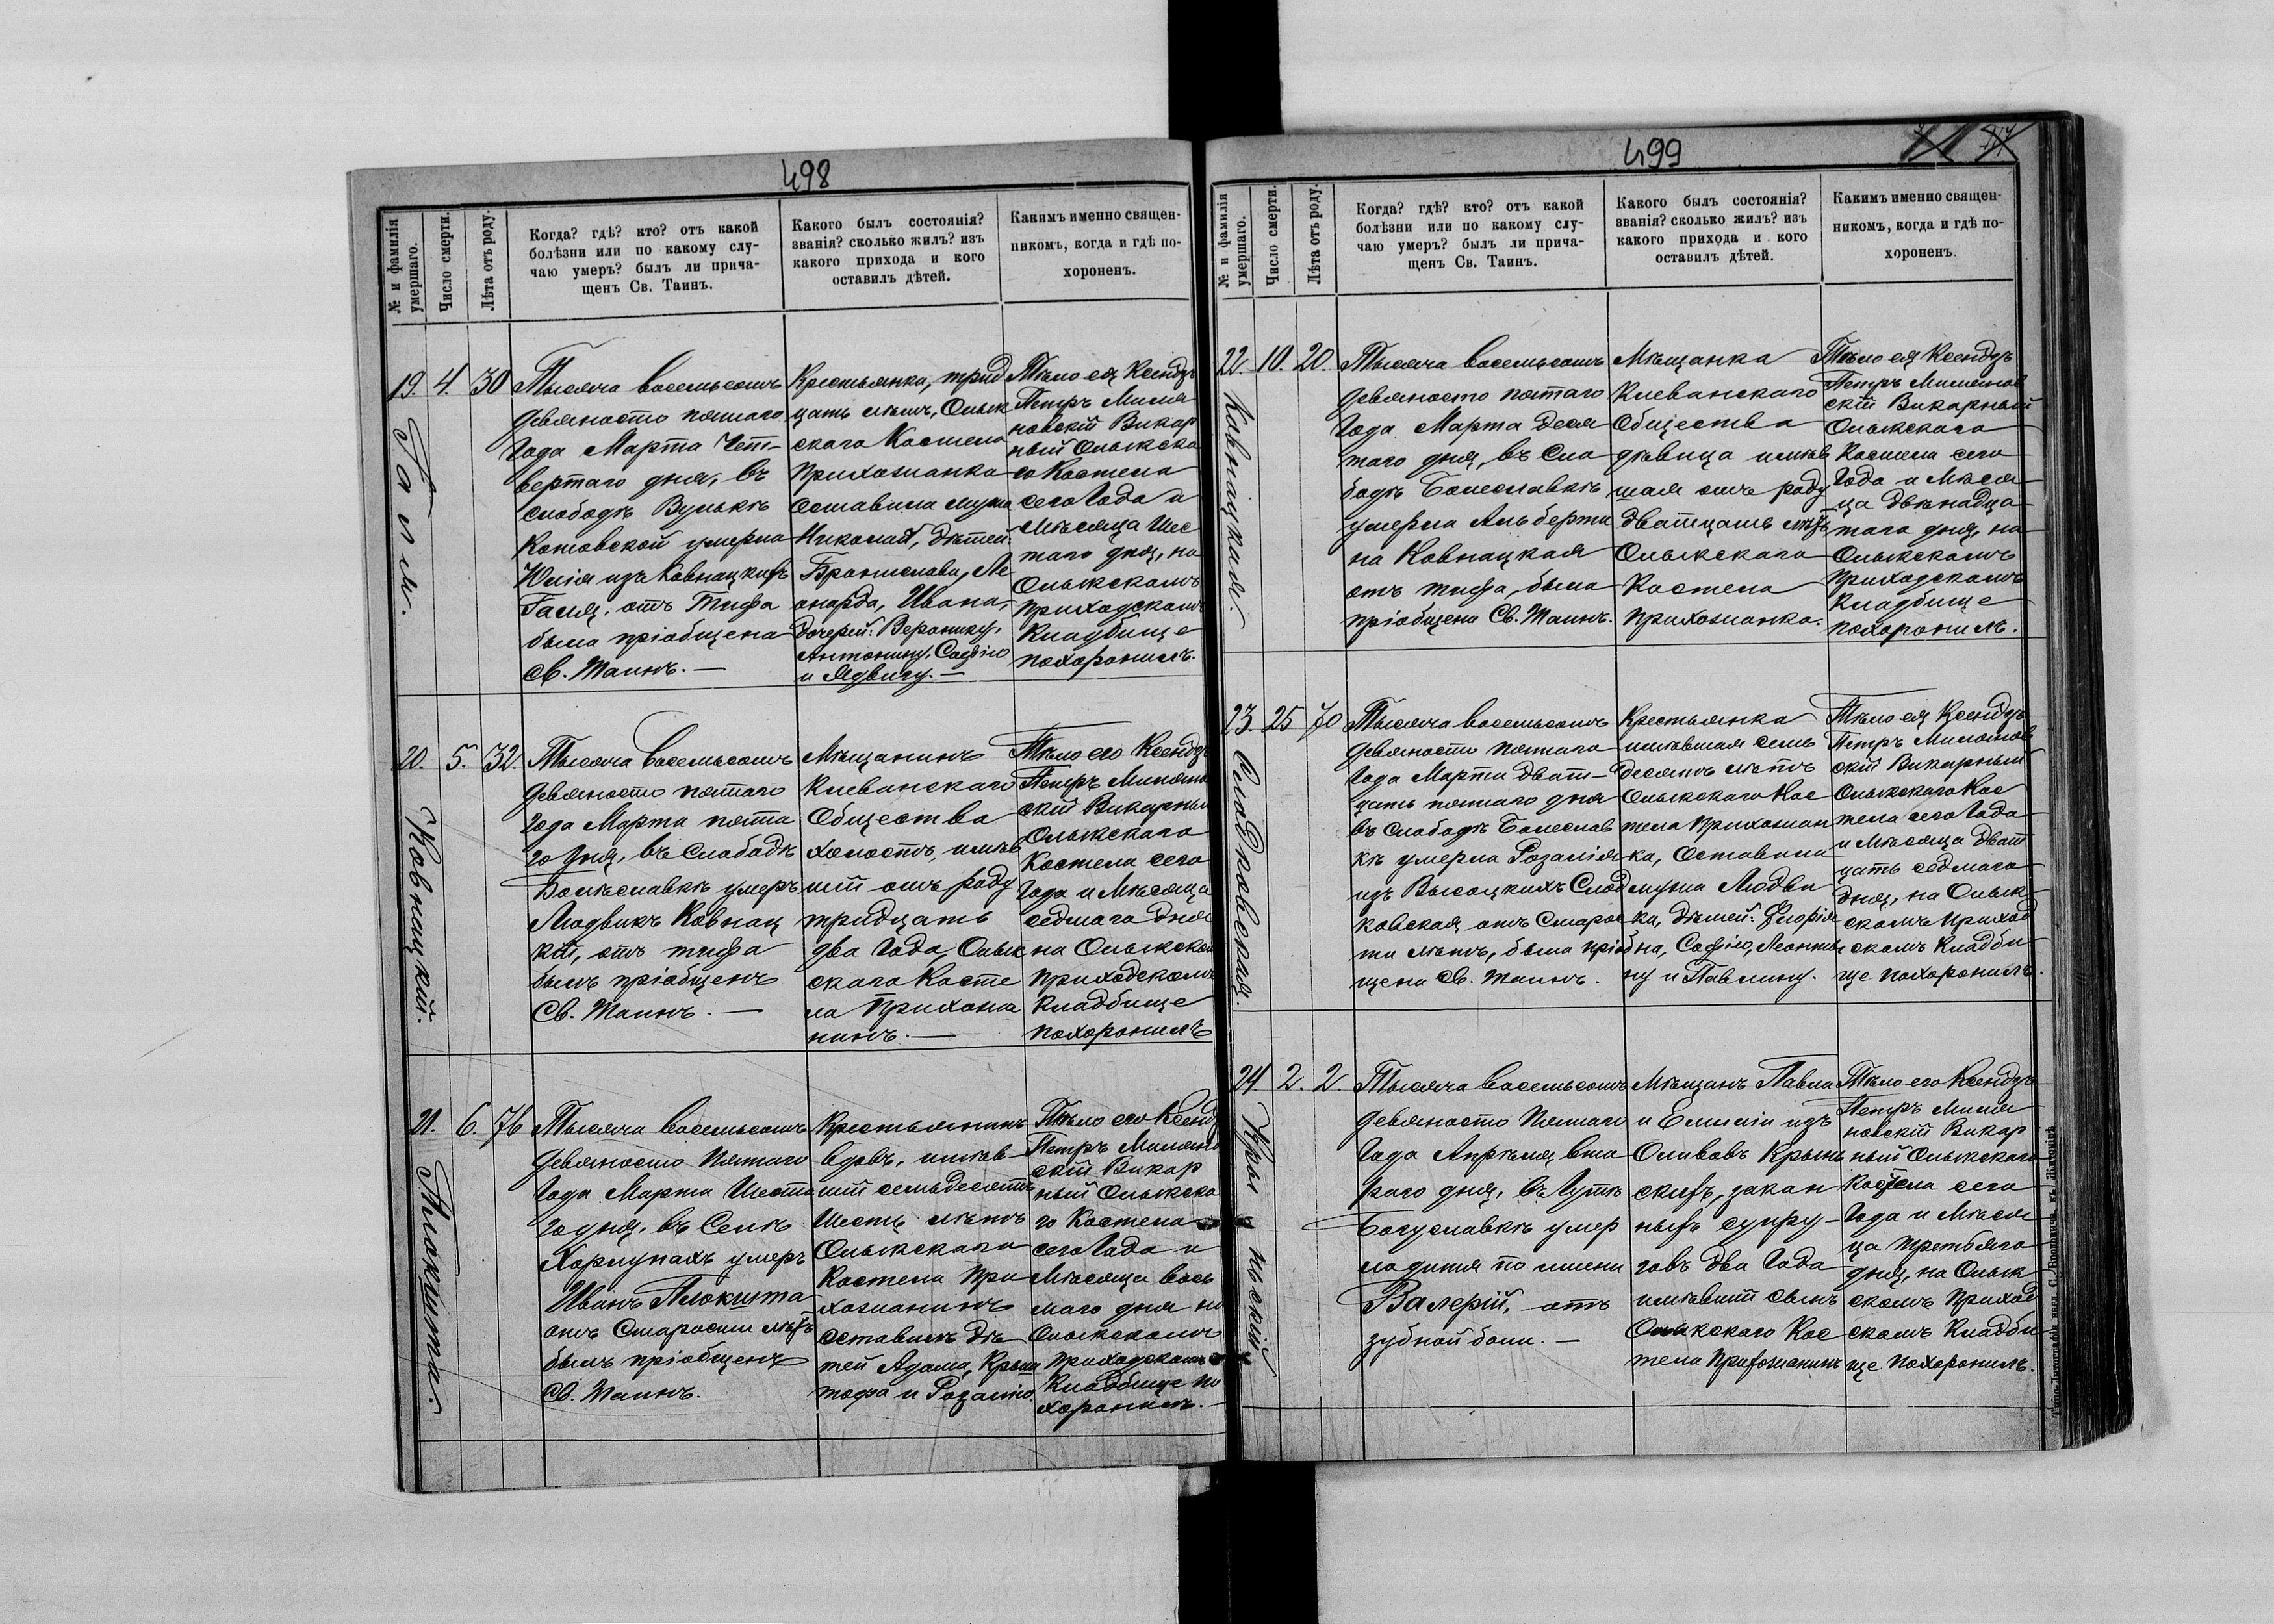 498
№ и фамилія
умершаго.
Число смерти.
Лѣта отъ роду.
Когда? гдѣ? кто? отъ какой
болѣзни или по какому слу-
чаю умеръ? былъ ли прича-
щенъ Св. Таинъ.
Какого былъ состоянія?
званія? сколько жилъ? изъ
какого прихода и кого
оставилъ дѣтей.
Каким​ъ именно священ-
никомъ, когда и гдѣ по-
хороненъ.
19.
4.
30
Тысяча восемьсотъ
девяносто пятаго
Года Марта Чет-
вертаго дня, въ
слободѣ Вулькѣ
Котовской умерла
Юлія изъ Ковнацкихъ
отъ Тифа
была пріобщена
Св. Таинъ. —
Крестьянка, трид
цать лѣтъ, Олык
скаго Костела
Прихожанка
оставила мужа
Николая, дѣтей:
Бронислава, Ле
онарда, Ивана,
дочерей: Веронику,
Антонину, Софію
и Ядвигу. —
Тѣло ея Ксендзъ
Петръ Миля
новскій Викар
ный Олыкска
го Костела
сего Года и
Мѣсяца Шес
таго дня, на
Олыкскомъ
приходскомъ
Кладбище
похоронилъ.
20.
Ковнацкій.
5.
32.
Тысяча восемьсотъ
девяносто пятаго
Года Марта пята
го дня, въ Слободѣ
Болеславкѣ умеръ
Людвикъ Ковнац
кій, отъ тифа
былъ пріобщенъ
Св. Таинъ. —
Мѣщанинъ
Клеванскаго
Общества
холостъ, имѣв
шій отъ роду
тридцать
два Года, Олык
скаго Косте
ла Прихожа
нинъ. —
Тѣло его Ксендзъ
Петръ Милянов
скій Викарный
Олыкскаго
Костела сего
Года и Мѣсяца
седмаго дня
на Олыкском
приходскомъ
Кладбище
похоронилъ
21.
Плокшта.
6.
76
Тысяча восемьсотъ
девяносто Пятаго
Года Марта Шеста
го дня, въ Селѣ
Хорлупахъ умеръ
Иванъ Плокшта
отъ Старости лѣтъ
былъ пріобщенъ
Св. Таинъ.
Крестьянинъ
вдовъ, имѣв-
шій семьдесятъ
Шесть лѣтъ
Олыкскаго
Костела При
хожанинъ
оставилъ дѣ
тей Адама, Крыш
тофа и Розалію.
Тѣло его Ксендз
Петръ Милянов
скій Викар
ный Олыкска
го Костела
сего Года и
Мѣсяца вось
маго дня на
Олыкскомъ
приходскомъ
Кладбище по
хоронилъ. —
499
№ и фамилія
умершаго.
Число смерти.
Лѣта отъ роду.
Когда? гдѣ? кто? отъ какой
болѣзни или по какому слу-
чаю умеръ? былъ ли прича-
щенъ Св. Таинъ.
Какого былъ состоянія?
званія? сколько жилъ? изъ
какого прихода и кого
оставилъ дѣтей.
Какимъ именно священ-
никомъ, когда и гдѣ по-
хороненъ.
22.
Ковнацкая.
10.
20.
Тысяча восемьсотъ
девяносто пятаго
Года Марта Деся
таго дня, въ Сло
бодѣ Болеславкѣ
умерла Альберти
на Ковнацкая
отъ тифа, была
пріобщена Св. Таинъ.
Мѣщанка
Клеванскаго
Общества
дѣвица имѣв
шая отъ роду
Дватцать лѣтъ
Олыкскаго
Костела
прихожанка.
Тѣло ея Ксендзъ
Петръ Миляновъ
скій Викарный
Олыкскаго
Костела сего
Года и Мѣся
ца Двѣнадца
таго дня, на
Олыкскомъ
приходскомъ
Кладбище
похоронилъ.
23.
Слодковская.
25
70
Тысяча восемьсотъ
девяносто пятаго
Года Марта Дват-
цать пятаго дня
въ Слободѣ Болеслав
кѣ умерла Розалія
изъ Высоцкихъ Слод
ковская отъ Старос
ти лѣтъ, была пріоб
щена Св. Таинъ.
Крестьянка
имѣвшая семь
десятъ лѣтъ
Олыкскаго Кос
тела Прихожан
ка, Оставила
мужа Людви
ка, дѣтей: Флорія
на, Софію, Леонты
ну и Павлину.
Тѣло ея Ксендзъ
Петръ Миляновъ
скій Викарный
Олыкскаго Кос
тела сего Года
и Мѣсяца Дват
цать седмаго
дня, на Олык
скомъ Приход
скомъ Кладби
ще похоронилъ.
24.
Крынскій
2.
2.
Тысяча восемьсотъ
девяносто Пятаго
Года Апрѣля вто
раго дня, въ Хуторѣ
Богуславкѣ умер
ло дитя по имени
Валерій, отъ
зубной боли. —
Мѣщанъ Павла
и Емиліи изъ
Оливовъ Крын
скихъ, закон
ныхъ супру-
говъ два Года
имѣвшій сынъ
Олыкскаго Кос
тела Прихожанинъ
Тѣло его Ксендзъ
Петръ Миля
новскій Викар
ный Олыкскаго
Костела сего
Года и Мѣся
ца третьяго
дня, на Олык
скомъ Приход
скомъ Кладби
ще похоронилъ.